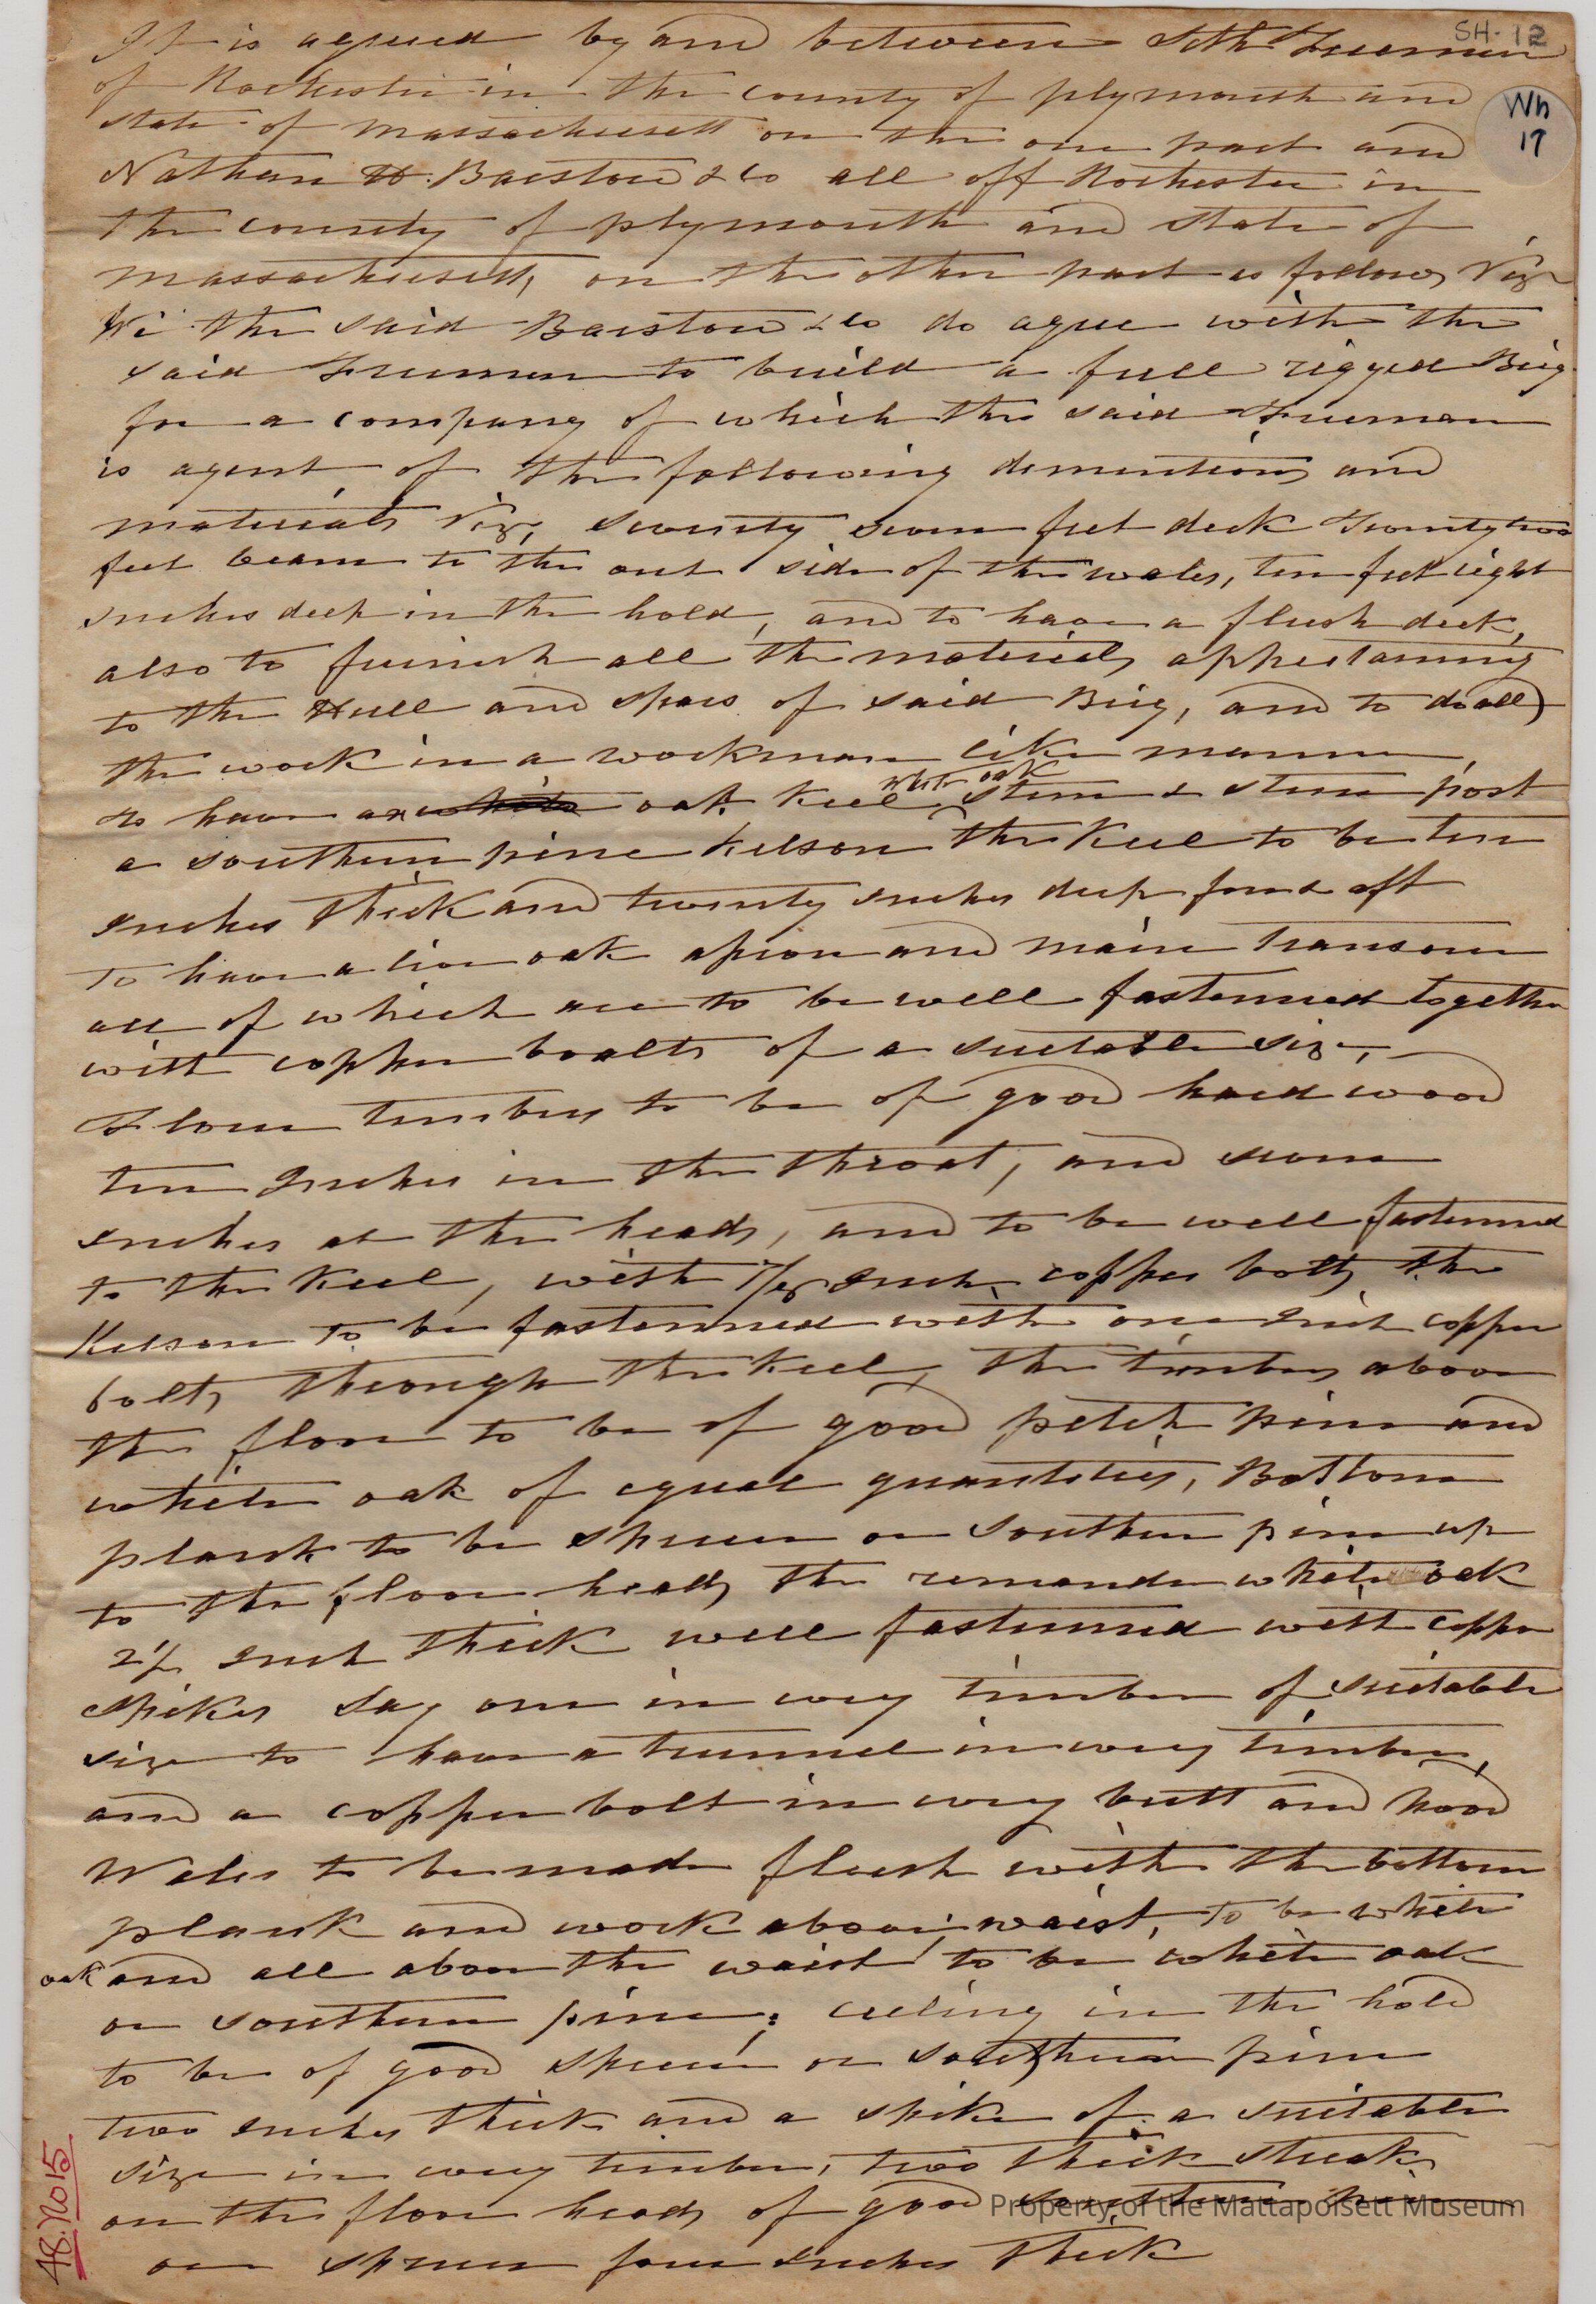 SH-12
Wh
17
It is agreed by and between Seth Freeman
of Rochester in the county of plymouth and
state of Massachusetts on the one part and
Nathan H. Barstow & Co all off Rochester in
the county of plymouth and state of
Massachusetts, on the other part as follows Viz
We the said Barstow & Co do agree with the
said Freeman to build a full rigged Brig
for a company of which the said Freeman
is agent of the following dimentions and
materials Viz, seventy seven feet deck Twenty two
feet beam to the out side of the wales, ten feet eight
Inches deep in the hold, and to have a flush deck,
also to furnish all the materials appertaining
to the Hull and spars of said Brig, and to do all
the work in a workman like manner,
to have an white oak keel white oak stem & stern post
a southern pine kelson the keel to be ten
Inches thick and twenty Inches deep fore & aft
To have a live oak apron and main transom
all of which are to be well fastenned together
with copper boalts of a suetable size,
Floor timbers to be of good hard wood
ten Inches in the throat, and seven
Inches at the heads, and to be well fastenned
to the keel, with 7/8 Inch copper bolts, the
Kelson to be fastenned with one Inch copper
bolts through the keel, the timbers above
the floor to be of good pitch pine and
white oak of equal quantities, Bottom
plank to be spruce or southern pine up
to the floor heads the remander white oak
2 1/2 Inch thick well fastenned with copper
spikes say one in every timber of suetable
size to have a trunnel in every timber,
and a copper bolt in every butt and hood
Wales to be made flush with the bottom
plank and work above, waist, to be white
oak and all above the waist to be white oak
or southern pine; ceeling in the hold
to be of good spruce or southern pine
two Inches thick and a spike of a suetable
size in every timber, two thick streaks
on the floor heads of good southern pine
or spruce four Inches thick
48. No 15
Property of the Mattapoisett Museum